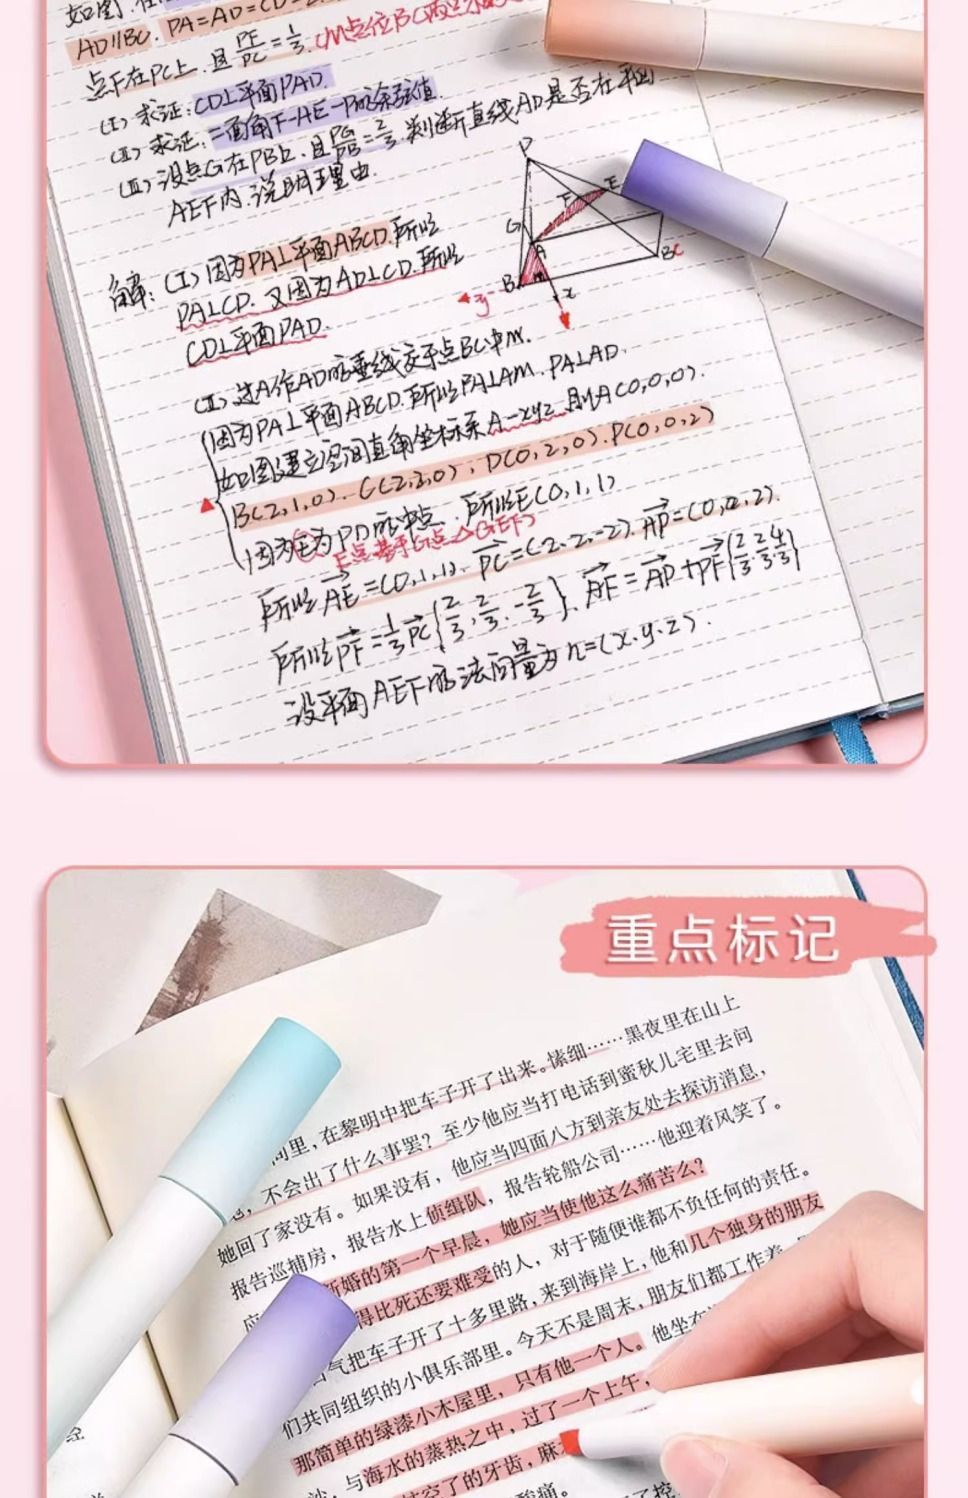 AD∥BC. PA=AD=CD=2
点F在PC上.且PF/PC=1/3.
(Ⅰ) 求证:CD⊥平面PAD.
(Ⅱ) 求证:二面角F-AE-P的余弦值
(Ⅲ) 设点G在PB上.且PG/PB=2/3.判断直线AD是否在平面
AEF内.说明理由.
解:(Ⅰ)因为PA⊥平面ABCD.所以
PA⊥CD. 又因为AD⊥CD.所以
CD⊥平面PAD.
(Ⅱ)过A作AD的垂线交于点BC中M.
因为PA⊥平面ABCD.所以PA⊥AM.PA⊥AD.
如图建立空间直角坐标系A-xyz.则A(0,0,0).
B(2,1,0).C(2,2,0);D(0,2,0).P(0,0,2)
因为E为PD的中点. 所以E(0,1,1)
所以AE=(0,1,1). PC=(2.2,-2).AP=(0,0,2).
所以PF=1/3PC(2/3,2/3.-2/3). AF=AP+PF(2/3.2/3.4/3)
设平面AEF的法向量为n=(x.y.z).
重点标记
间里,在黎明中把车子开了出来。愫细……黑夜里在山上
,不会出了什么事罢?至少他应当打电话到蜜秋儿宅里去问
她回了家没有。如果没有,他应当四面八方到亲友处去探访消息,
报告巡捕房,报告水上侦缉队,报告轮船公司……他迎着风笑了。
应 新婚的第一个早晨,她应当使他这么痛苦么?
得比死还要难受的人,对于随便谁都不负任何的责任。
气把车子开了十多里路,来到海岸上,他和几个独身的朋友
们共同组织的小俱乐部里。今天不是周末,朋友们都工作着
那简单的绿漆小木屋里,只有他一个人。他坐在
,与海水的蒸热之中,过了一个上午,
了的牙齿,麻
酸痛。